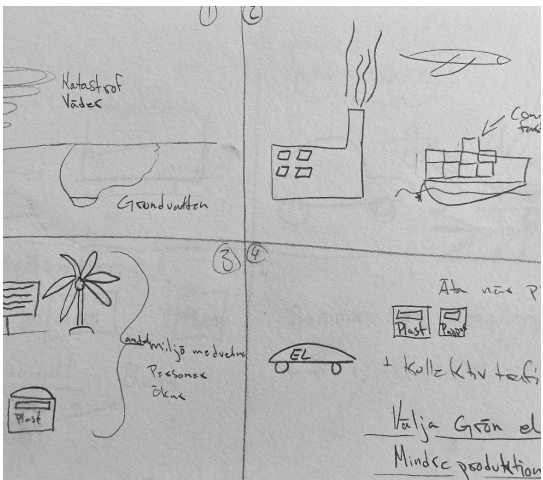 1
Katastrof
Väder
Grundvatten
2
3
antal miljö medvetna
Personer
Ökar
Plast
4
Äta
Plast
EL
+ Kollektiv trafi
Välja Grön el
Mindre produktion